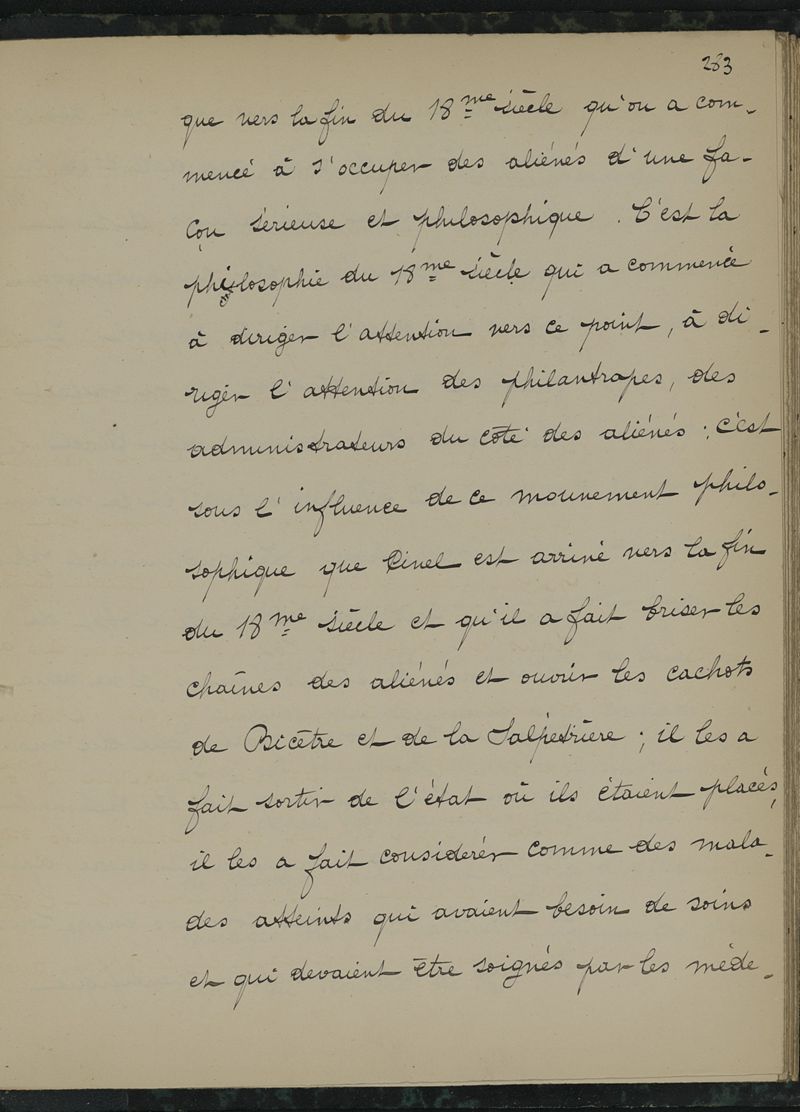 283
que vers la fin du 18me siècle qu'on a com-
mencé à s'occuper des aliénés d'une fa-
çon sérieuse et philosophique. C'est la
philosophie du 18me siècle qui a commencé
à diriger l'attention vers ce point, à di-
riger l'attention des philantrapes, des
administrateurs du côté des aliénés ; c'est
sous l'influence de ce mouvement philo-
sophique que Pinel est arrivé vers la fin
du 18me siècle et qu'il a fait briser les
chaînes des aliénés et ouvrir les cachots
de Bicêtre et de la Salpétrière ; il les a
fait sortir de l'état où ils étaient placés,
il les a fait considérer comme des mala-
des atteints qui avaient besoin de soins
et qui devaient être soignés par les méde-